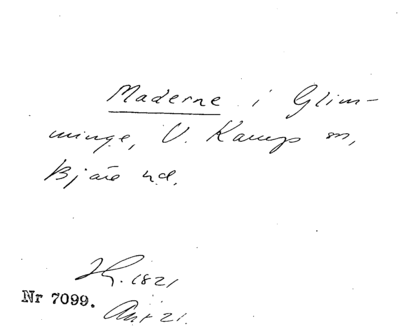 Maderne i Glim-
minge, V. Karups sn,
Bjäre hd.
1821
Nr 7099.
21.